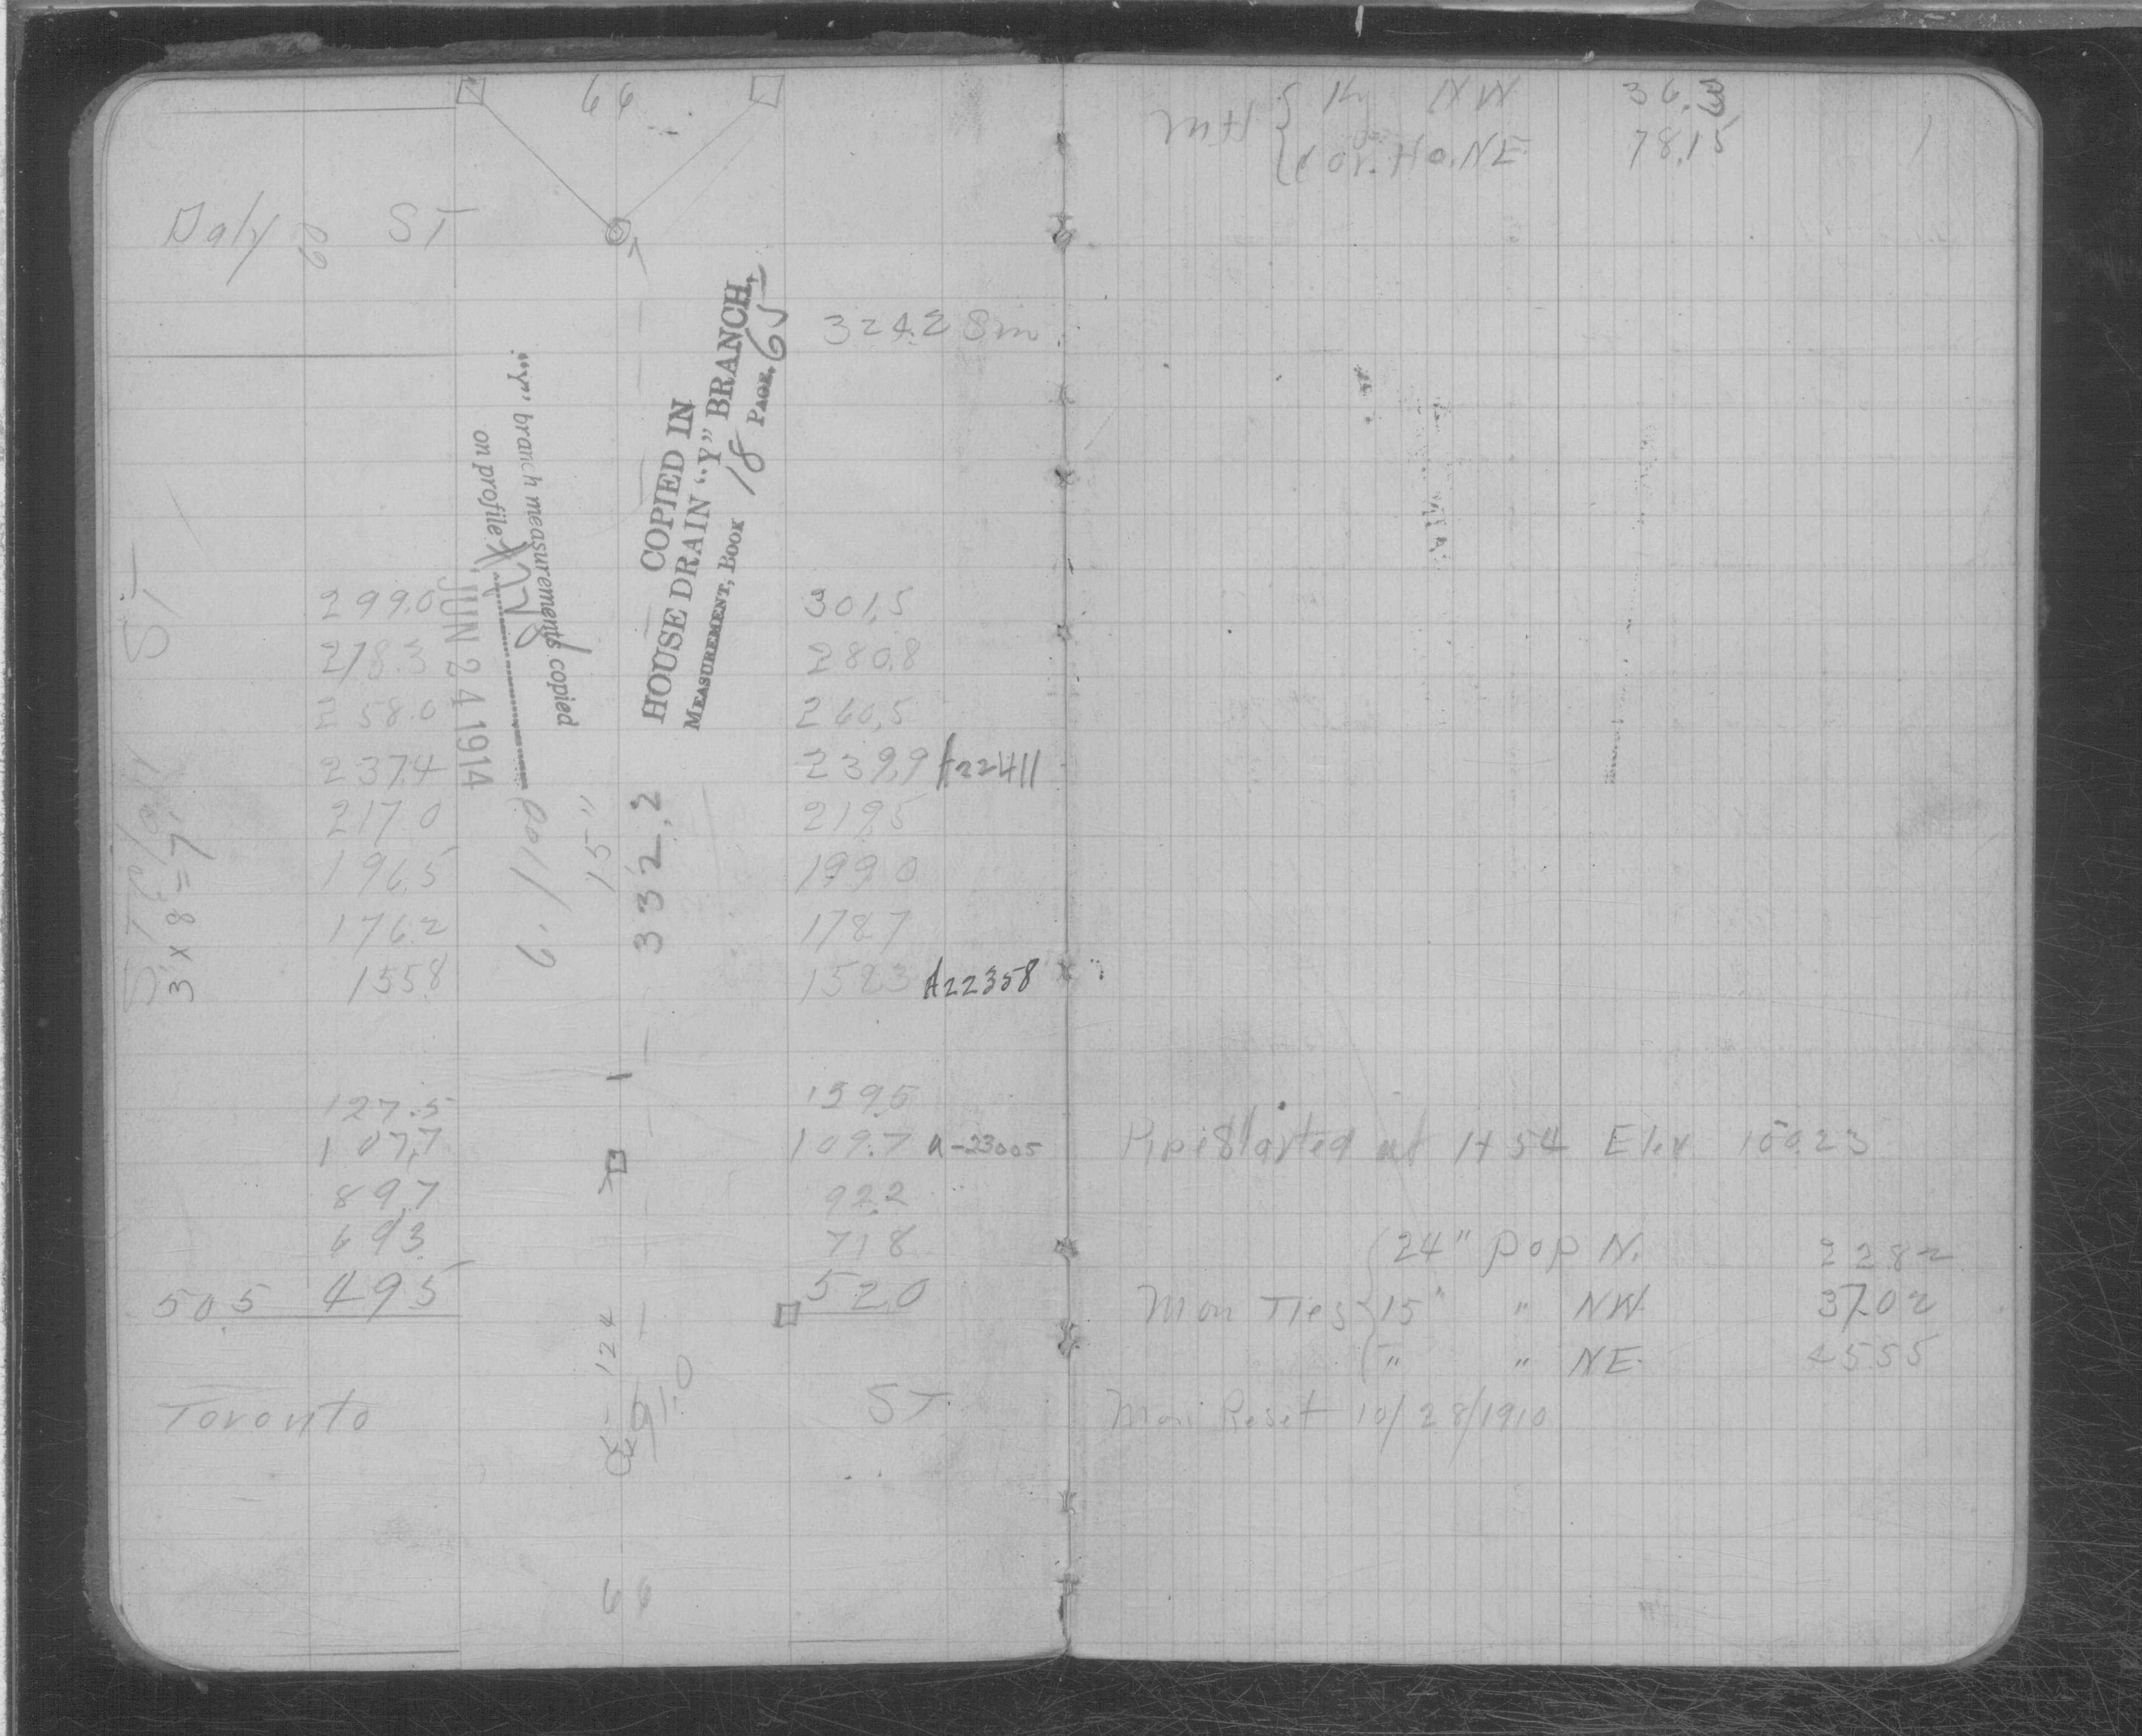 66
Daly ST
324.2 8m
COPIED IN
HOUSE DRAIN "Y" BRANCH,
MEASUREMENT, BOOK 18 PAGE, 65
"Y" branch measurements copied
on profile
JUN 24 1914
ST
299.0 301.5
278.3 280.8
258.0 260.5
237.4 239.9 A22411
217.0 219.5
196.5 199.0
176.2 178.7
155.8 158.3 A22358
15"
332.2
3 x 8 = 7
127.5 139.5
107.7 109.7 A-23005
89.7 92.2
69.3 71.8
50.5 49.5 52.0
124
91.0
Toronto ST.
66
MH { Ky NW 36.
Cor. Ho. NE 78.15
Pipe Started at 1+54 Elev 150.23
24" Pop N. 22.82
Mon Ties 15" " NW 37.02
" " NE. 45.55
Mon Reset 10/28/1910